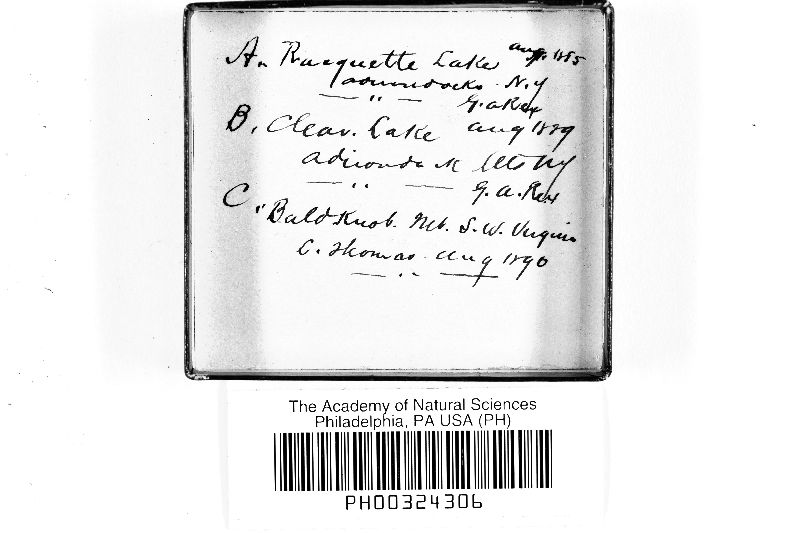 A. Racquette Lake Aug. 1885
Adirondacks. N.Y
— " — G.A Rex
B. Clear. Lake Aug 1889
Adirondack Mts NY
— " — G. A. Rex
C. " Bald Knob. Mt. S. W. Virginia
C. Thomas. Aug 1890
— " —
The Academy of Natural Sciences
Philadelphia, PA USA (PH)
PH00324306